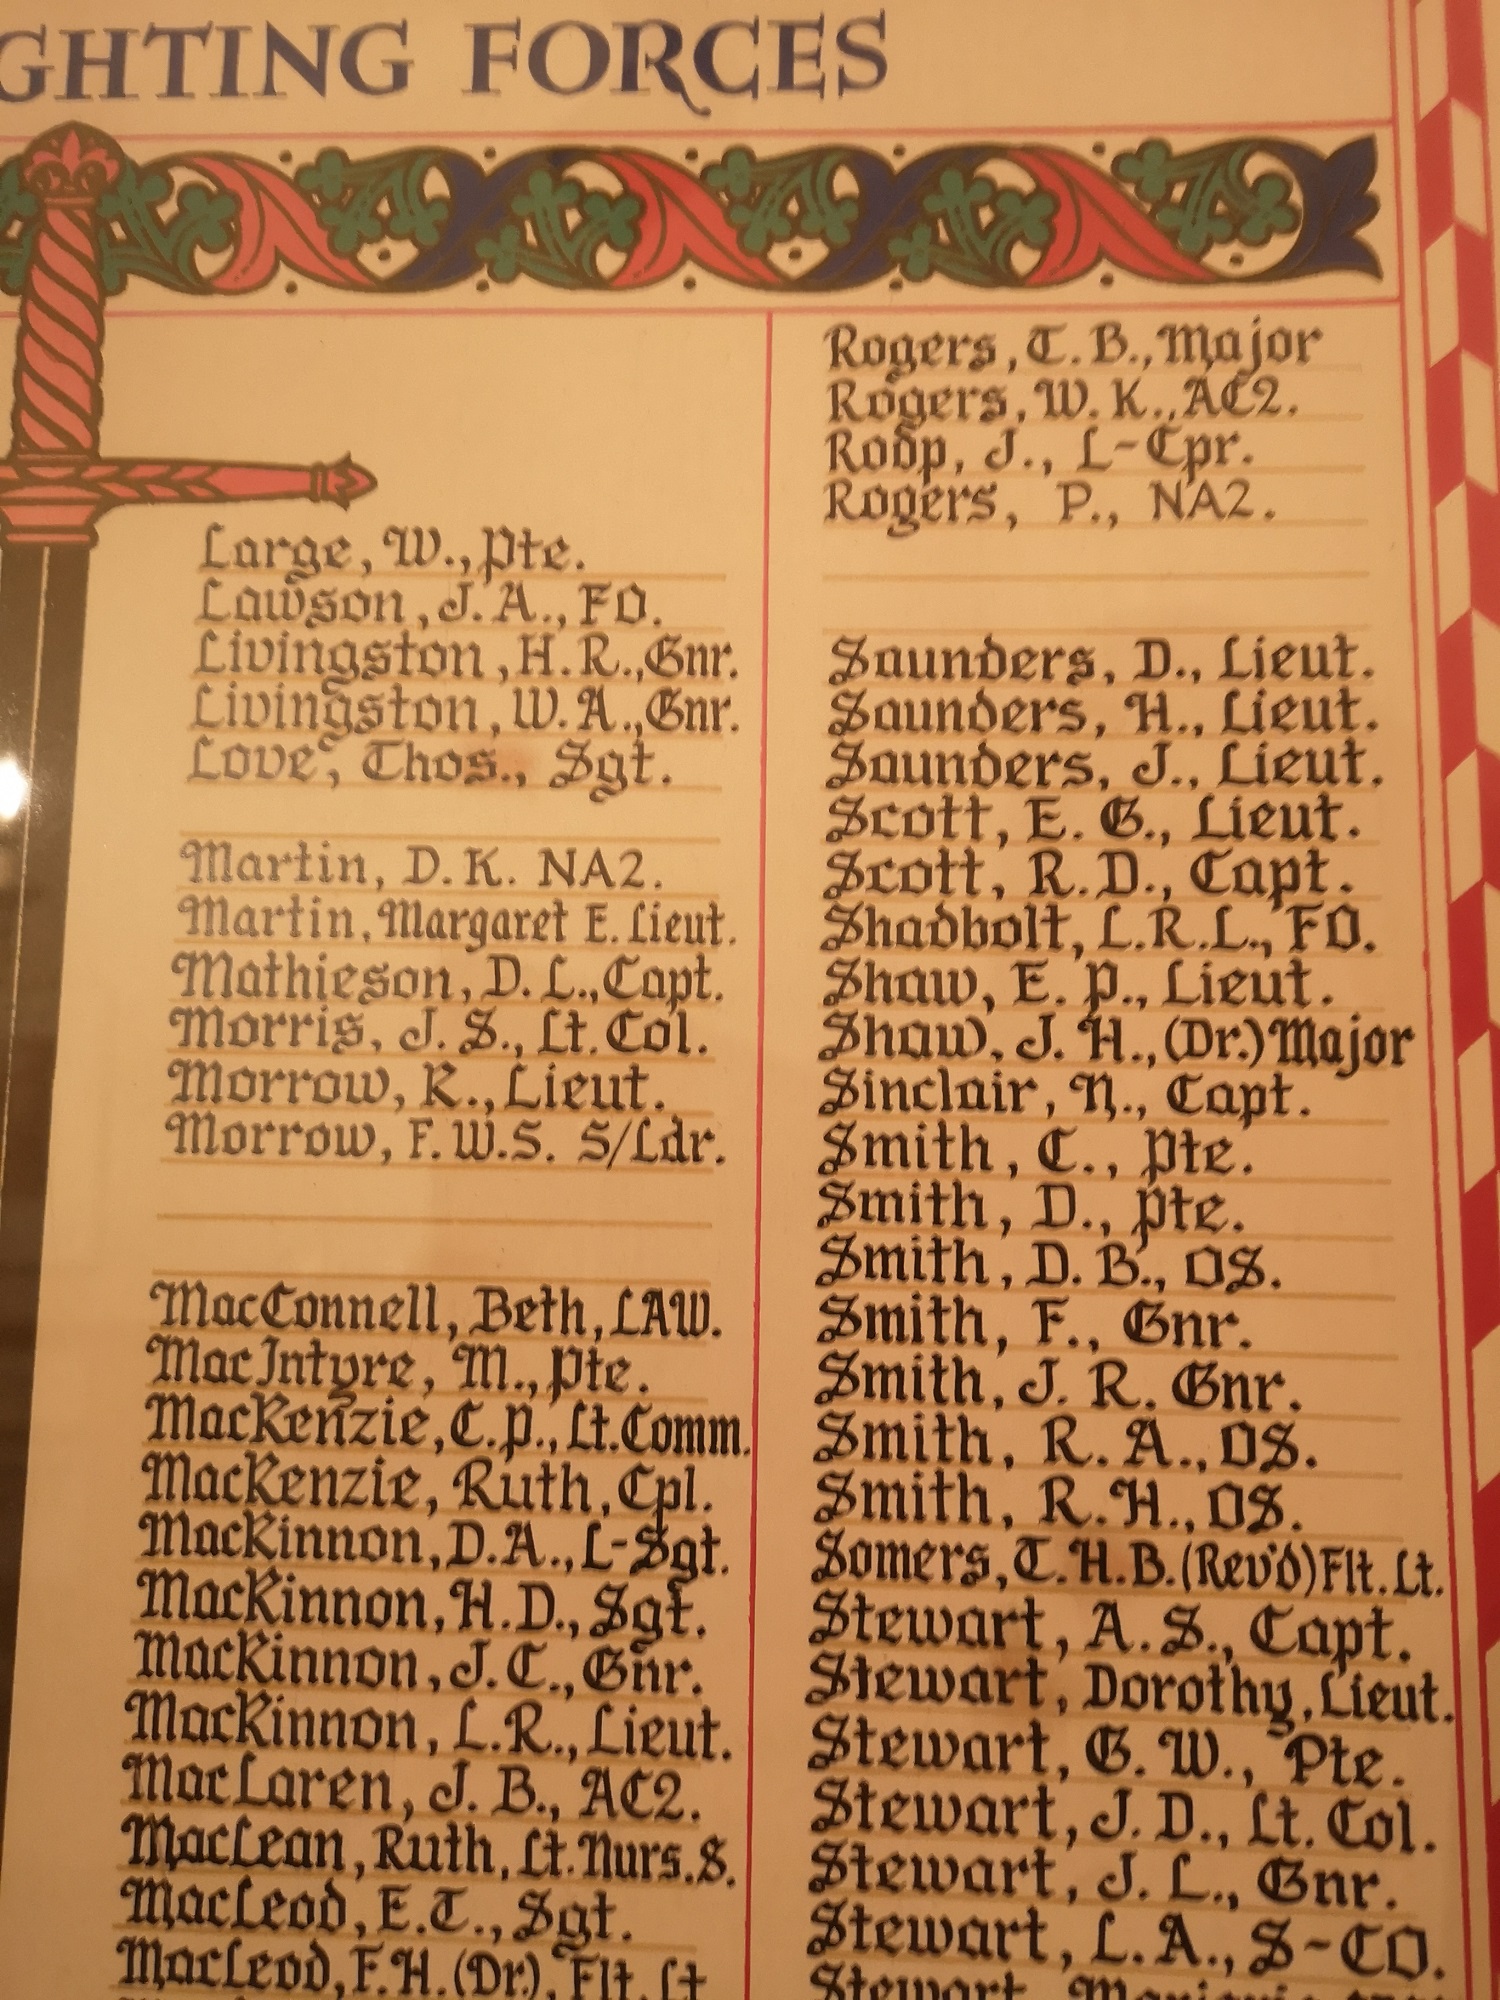 GHTING FORCES
Large, W., Pte.
Lawson, J. A., FO.
Livingston, H. R., Gnr.
Livingston, W. A., Gnr.
Love, Thos., Sgt.
Martin, D. K. NA2.
Martin, Margaret E. Lieut.
Mathieson, D. L., Capt.
Morris, J. S., Lt. Col.
Morrow, R., Lieut.
Morrow, F. W. S. S/Ldr.
MacConnell, Beth, LAW.
MacIntyre, M., Pte.
MacKenzie, C. P., Lt. Comm.
MacKenzie, Ruth, Cpl.
MacKinnon, D. A., L-Sgt.
MacKinnon, H. D., Sgt.
MacKinnon, J. C., Gnr.
MacKinnon, L. R., Lieut.
MacLaren, J. B., AC2.
MacLean, Ruth, Lt. Nurs. S.
MacLeod, E. T., Sgt.
MacLeod, F. H. (Dr), Flt. Lt
Rogers, T. B., Major
Rogers, W. K., AC2.
Rodp, J., L-Cpr.
Rogers, P., NA2.
Saunders, D., Lieut.
Saunders, H., Lieut.
Saunders, J., Lieut.
Scott, E. G., Lieut.
Scott, R. D., Capt.
Shadbolt, L. R. L., FO.
Shaw, E. P., Lieut.
Shaw, J. H., (Dr.) Major
Sinclair, N., Capt.
Smith, C., Pte.
Smith, D., Pte.
Smith, D. B., OS.
Smith, F., Gnr.
Smith, J. R. Gnr.
Smith, R. A., OS.
Smith, R. H., OS.
Somers, T. H. B. (Rev'd) Flt. Lt.
Stewart, A. S., Capt.
Stewart, Dorothy, Lieut.
Stewart, G. W., Pte.
Stewart, J. D., Lt. Col.
Stewart, J. L., Gnr.
Stewart, L. A., S-CO.
Stewart,